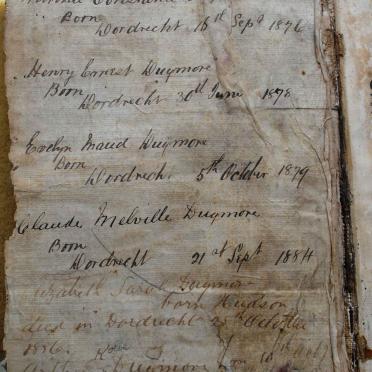 Born
Dordrecht 16th Sept 1876
Henry Ernest Dugmore
Born
Dordrecht 30th June 1878
Evelyn Maud Dugmore
Born
Dordrech. 5th October 1879
Claude Melville Dugmore
Born
Dordrecht 21st Sept 1884
Elizabeth Sarah Dugmore
born Hudson
died in Dordrecht October
1886.
Dugmore